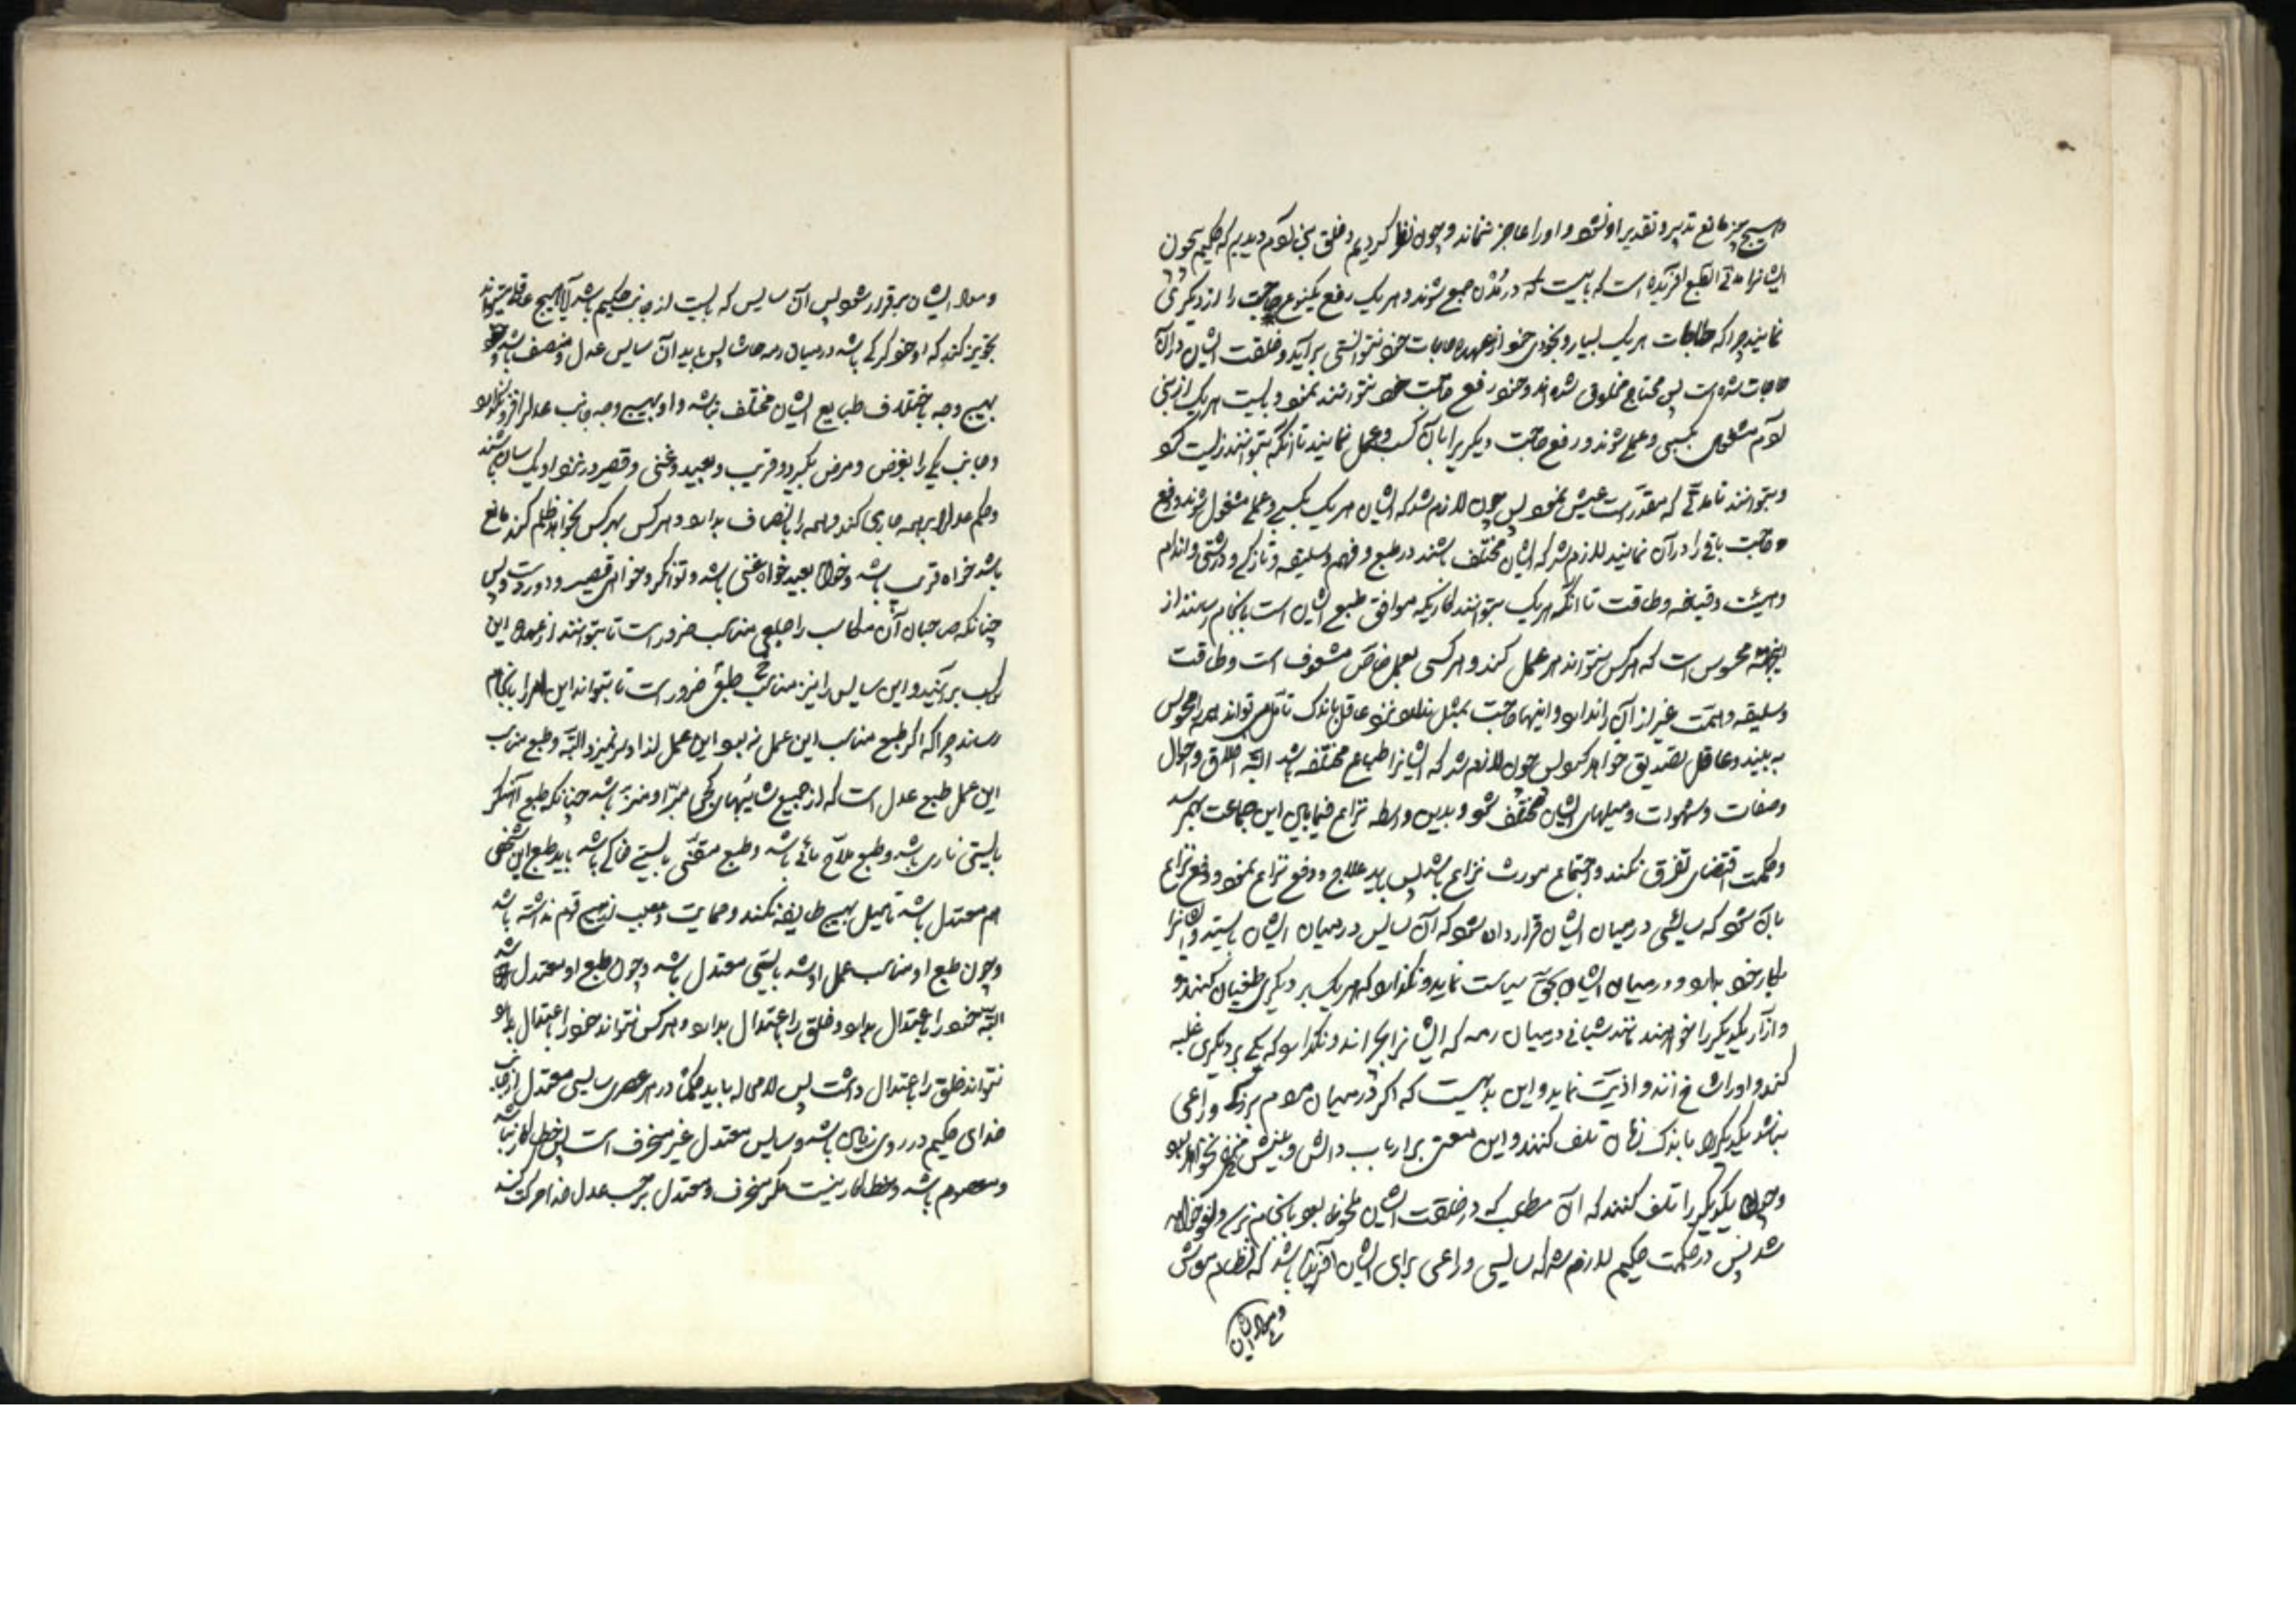 و هیچ چیز مانع تدبیر و تقدیر او نشود و او را عاجز ننماند و چون نظر کردیم در خلق بنی آدم دیدیم که حکیم بیچون
ایشانرا مدنی الطبع آفریده است که بایست که در تمدن جمع شوند و هر یک رفع یکنوع حاجت را از دیگری
نمایند چرا که حاجات هر یک بسیار و بخودی خود از عهده حاجات خود نتوانستی برآید و خلقت ایشان دارای
حاجات شده است پس محتاج مخلوق شده‌اند و خود رفع حاجت خود نتوانند نمود و بایست هر یک از بنی
آدم مشغول بکسبی و عملی شوند و رفع حاجت دیگریرا بآن کسب و عمل نمایند تا آنکه بتوانند زیست کرد
و بتوانند تا مدتی که مقدر است عیش نمود پس چون لازم شد که ایشان هر یک بکسبی و عملی مشغول شوند و رفع
حاجت باقی را در آن نمایند لازم شد که ایشان مختلف باشند در طبع و فهم و سلیقه و نازکی و درشتی و اندام
و هیئت و قیافه و طاقت تا آنکه هر یک بتوانند کاریکه موافق طبع ایشان است بانجام رسانند از
اینجهة محسوس است که هر کس نتواند هر عمل کند و هر کسی بعمل خاص مشعوف است و طاقت
و سلیقه و همت غیر از آن را ندارد و اینها حاجت بمثل ندارد عاقل باندک تأمل می‌تواند همه را محسوس
به بیند و عاقل تصدیق خواهد کرد پس چون لازم شد که ایشانرا طبایع مختلفه باشد البته اخلاق و احوال
و صفات و شهوات و میلهای ایشان مختلف شود و بدین واسطه نزاع فیمابین این جماعت بهم رسد
و حکمت اقتضای تفرق نکند و اجتماع مورث نزاع باشد پس باید علاج و دفع نزاع نمود و دفع نزاع
بآن شود که سائسی در میان ایشان قرار داده شود که آن سایس در میان ایشان بایستد و ایشانرا
بکار خود بدارد و در میان ایشان بحق سیاست نماید و نگذارد که هر یک بر دیگری طغیان کنند و
و آزار یکدیگر را خواهند مانند شبانی در میان رمه که ایشانرا بچراند و نگذارد که یکی بر دیگری غلبه
کند و او را شاخ زند و اذیت نماید و این بدیهیست که اگر در میان مردم بزرگ و راعی
نباشد یکدیگر را باندک زمان تلف کنند و این معنی بر ارباب دانش و بینش مخفی نخواهد بود
و چون یکدیگر را تلف کنند که آن مطلب که در خلقت ایشان ملحوظ بود بانجام نرسد و لغو خواهد
شد پس در حکمت حکیم لازم شد که سایسی و راعی برای ایشان آفریده باشد که نظام معاش
و معاد ایشان
و معاد ایشان برقرار شود پس آن سایس که بایست از جانب حکیم باشد آیا هیچ عاقل میتواند
تجویز کند که او خود گرگی باشد در میان رمه حاشا پس باید آن سایس عدل و منصف باشد و
بهیچ وجه باختلاف طبایع ایشان مختلف نباشد و او بهیچ وجه جانب عدل را فرو نگذارد
و جانب یکی را بغرض و مرض نگیرد و قریب و بعید و غنی و فقیر در نزد او یکسان باشند
و حکم عدل را بر همه جاری کند و همه را بانصاف بدارد و هر کس بهر کس بخواهد ظلم کند مانع
باشد خواه قریب باشد و خواه بعید خواه غنی باشد و توانگر و خواه فقیر و دوردست پس
چنانکه صاحبان آن مکاسب را طبعی مناسب ضرور است تا بتوانند از عهده این
کسب برآیند و این سایس را نیز مناسب طبعی ضرور است تا بتواند این امر را بانجام
رساند چرا که اگر طبع مناسب این عمل نبود این عمل از او سر نمیزد البته و طبع مناسب
این عمل طبع عدل است که از جمیع شائبهای کجی مبرا و منزه باشد چنانکه طبع آهنگر
بایستی ناری باشد و طبع ملاح مائی باشد و طبع مقنی بایستی خاکی باشد باید طبع این شخص
هم معتدل باشد تا میل بهیچ طایفه نکند و حمایت و تعصب از هیچ قوم نداشته باشد
و چون طبع او مناسب عمل او شد بایستی معتدل باشد و چون طبع او معتدل شد
البته خود را باعتدال بدارد و خلق را باعتدال بدارد و هر کس نتواند خود را باعتدال بدارد
نتواند خلق را باعتدال داشت پس لامحاله باید حکماً در هر عصری سایسی معتدل از جانب
خدای حکیم در روی زمین باشد و سایس معتدل غیر منحرف است پس خطاکار نباشد
و معصوم باشد و خطاکار نیست مگر منحرف و معتدل بر حسب عدل خدا حرکت کند